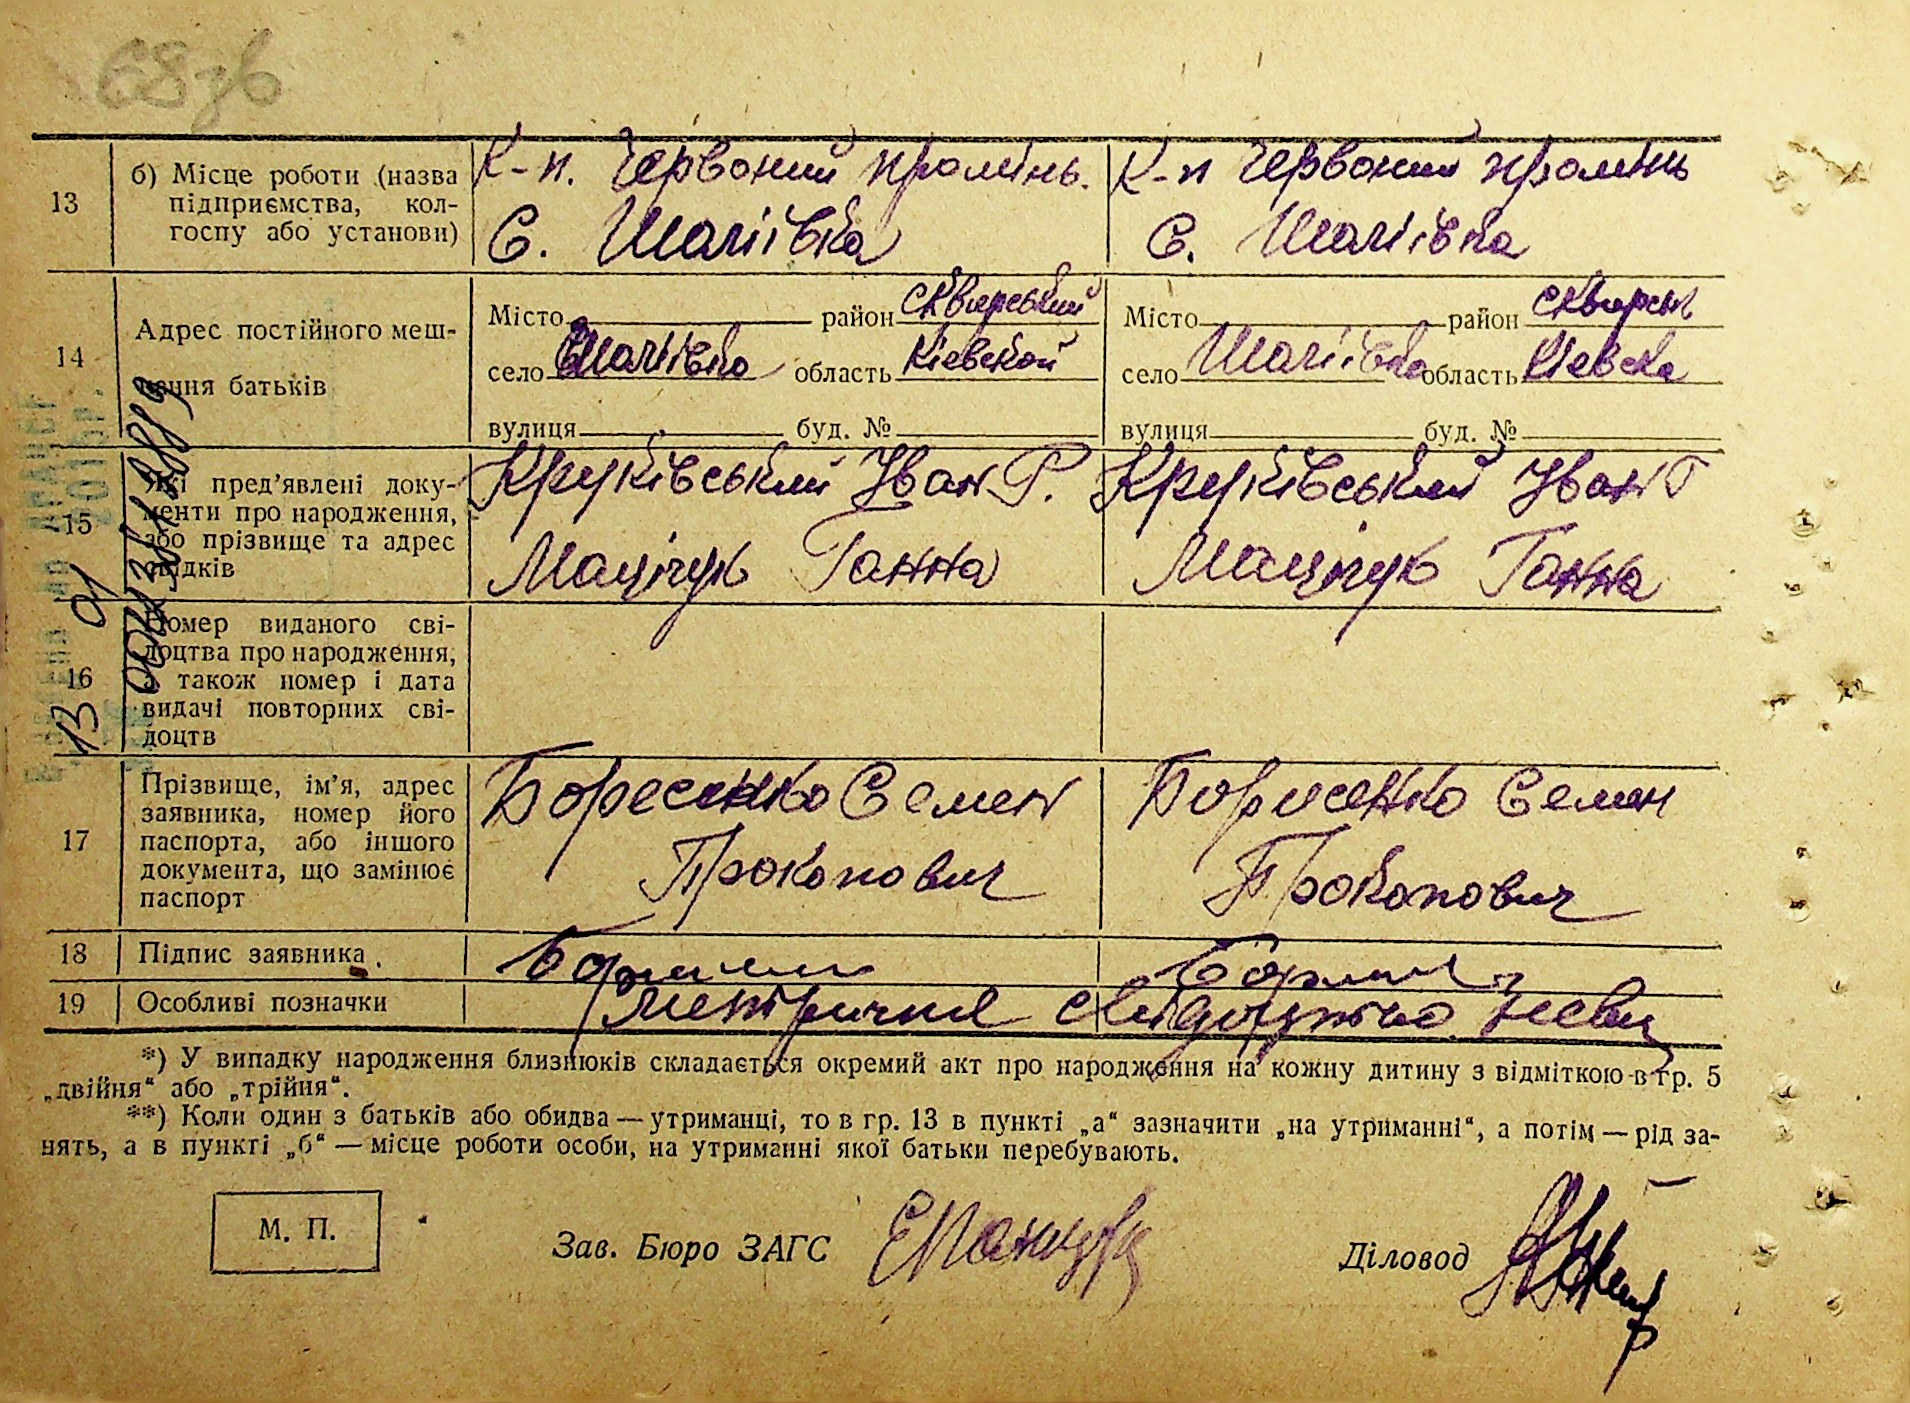 68зв
13 б) Місце роботи (назва підприємства, кол-госпу або установи) К-п. Червоний промінь. С. Шаліївка К-п Червоний промінь С. Шаліївка
14 Адрес постійного меш-
кання батьків
Місто район Сквирський Місто район Сквирськ
село Шаліївка область Кіевской село Шаліївка область Кіевска
вулиця буд. № вулиця буд. №
15 Які пред’явлені доку-
менти про народження,
або прізвище та адрес
свідків
Круківський Іван Г. Круківський Іван Г
Мацічук Ганна Мацічук Ганна
16 Номер виданого сві-
доцтва про народження,
а також номер і дата
видачі повторних сві-
доцтв
13 01
17 Прізвище, ім’я, адрес
заявника, номер його
паспорта, або іншого
документа, що замінює
паспорт
Боресенко Семен Борисенко Семен
Прокопович Прокопович
18 Підпис заявника.
19 Особливі позначки Метричне свідоцтво
*) У випадку народження близнюків складається окремий акт про народження на кожну дитину з відміткою в гр. 5
„двійня“ або „трійня“.
**) Коли один з батьків або обидва — утриманці, то в гр. 13 в пункті „а“ зазначити „на утриманні“, а потім — рід за-
нять, а в пункті „б“ — місце роботи особи, на утриманні якої батьки перебувають.
М. П. Зав. Бюро ЗАГС Діловод